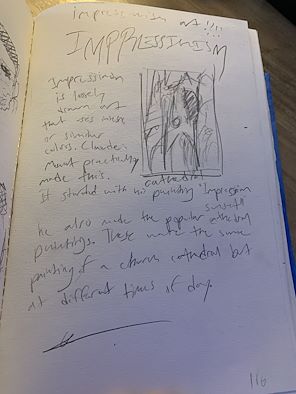 Impressionism art!!!!
IMPRESSIONISM
Impressionism
is lovely
drawn art
that uses
or similar
colors. Claude
Monet practically
made this.
cathedral
it started with his painting "Impression
sunset"
he also made the popular cathedral
paintings. These were the same
painting of a church cathedral but
at different times of day.
116